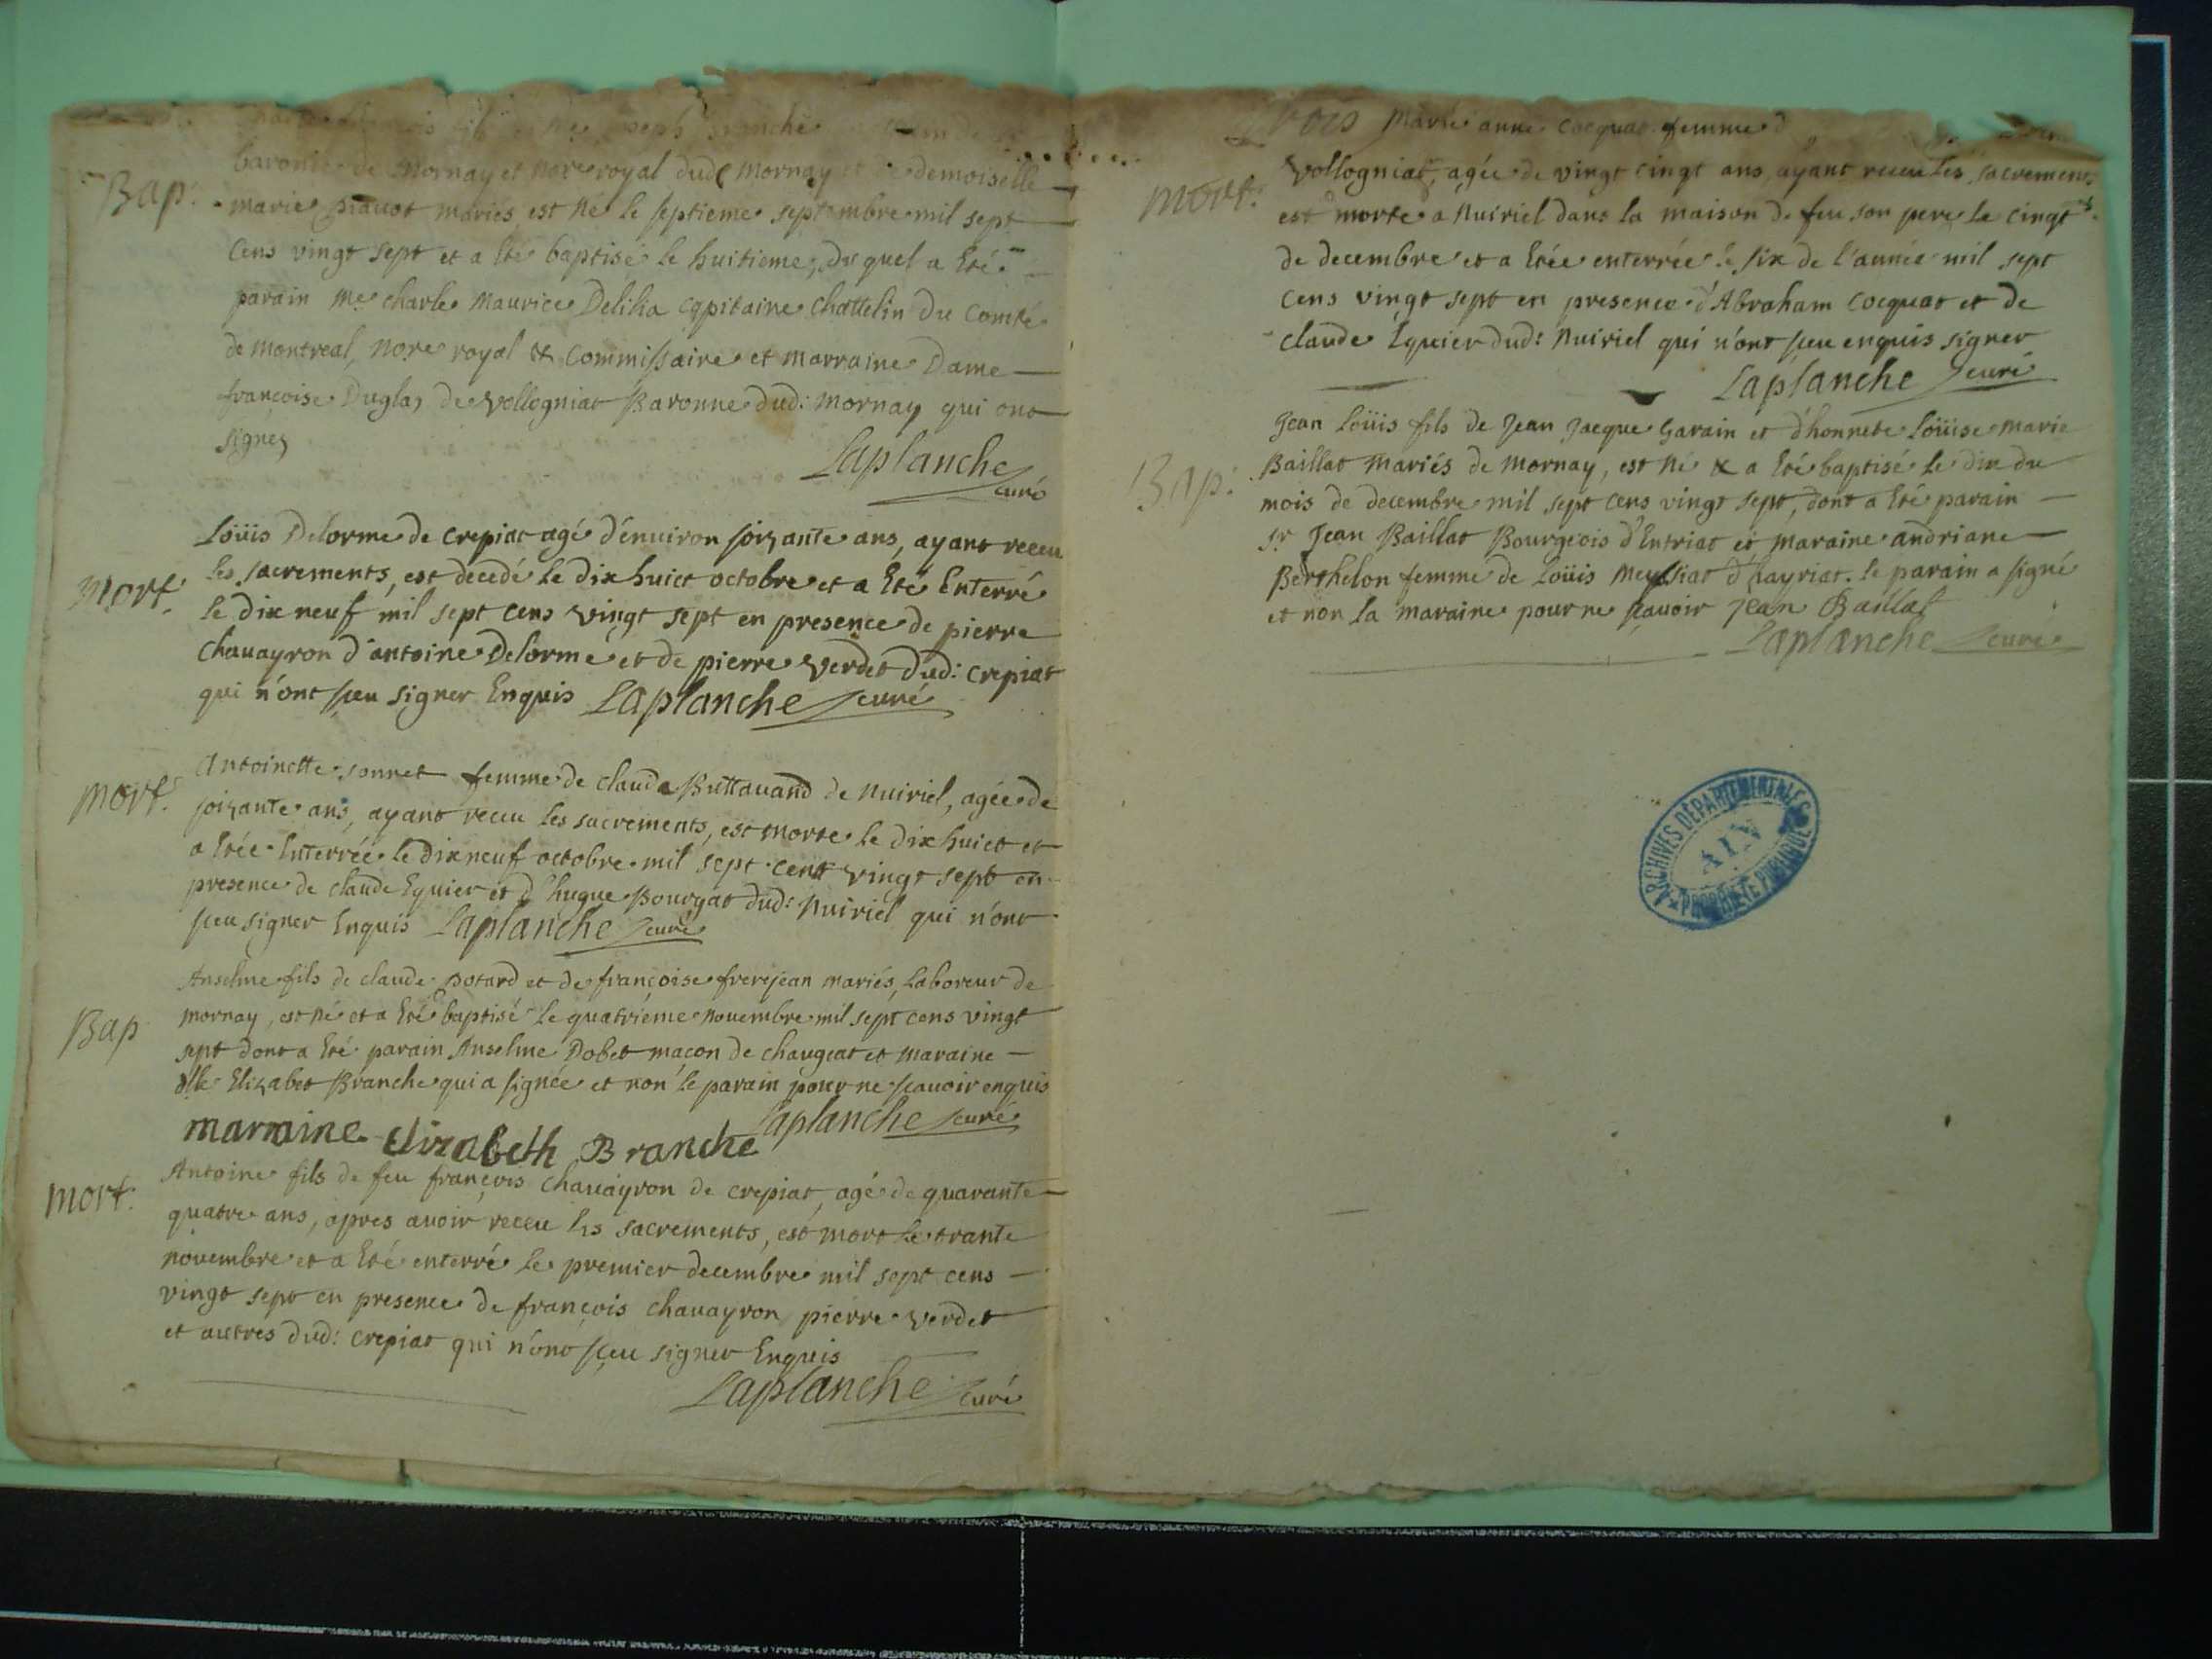 Bap:
baronie de Mornay et no.re royal dud. Mornay et de demoiselle
marie piquot mariés, est né le septieme septembre mil sept
cens vingt sept et a été baptisé le huitieme, du quel a été
parain Me. charle Maurice Delilia capitaine chattelin du Comté
de montreal, no.re royal & Commissaire et marraine Dame
françoise Duglas de vollogniat Baronne dud: mornay qui ont
signes
Laplanche curé
mort.
Loüis Delorme de crepiat agé d'enuiron soizante ans, ayant receu
les sacrements, est decedé le dixhuict octobre et a Eté Enterré
le dix neuf mil sept cens vingt sept en presence de pierre
chauayron d'antoine Delorme et de pierre verdet dud: crepiat
qui n'ont sceu signer Enquis Laplanche curé
mort.
Antoinette sonnet femme de claude Buttauand de Nuiriel, agée de
soizante ans, ayant receu les sacrements, est morte le dix huict et
a Etée Enterrée le dixneuf octobre mil sept cent vingt sept en
presence de claude Eguier et d'hugue Bourgat dud: Nuiriel qui n'ont
sceu signer Enquis Laplanche curé
Bap
Anselme fils de claude potard et de françoise frerejean mariés, Laboreur de
mornay, est né et a Eté baptisé le quatrieme novembre mil sept cens vingt
sept dont a Eté parain Anselme Dobet maçon de chaugeat et maraine
dlle Elizabet Branche qui a signée et non le parain pour ne scauoir enquis
Laplanche curé
marraine Elizabeth Branche
mort.
Antoine fils de feu françois chauayron de crepiat, agé de quarante
quatre ans, apres auoir receu les sacrements, est mort le trante
novembre et a Eté enterré le premier decembre mil sept cens
vingt sept en presence de françois chauayron, pierre verdet
et autres dud: crepiat qui n'ont sceu signer Enquis
Laplanche curé
trois Marie anne Cocquat femme d
mort:
vollogniat, agée de vingt cingt ans, ayant receu les sacrements
est morte a Nuiriel dans la maison de feu son pere le cingt
de decembre et a Etée enterrée le six de l'année mil sept
cens vingt sept en presence d'Abraham Cocquat et de
claude Eguier dud: Nuiriel qui n'ont sceu enquis signer
Laplanche curé
Bap:
Jean Loüis fils de Jean Jacque Garain et d'honnete Loüise marie
Baillat mariés de mornay, est né & a Eté baptisé le dix du
mois de decembre mil sept cens vingt sept, dont a Eté parain
sr Jean Baillat Bourgeois d'Entriat et maraine andriane
Berthelon femme de Loüis Meyssiat d'hayriat. le parain a signé
et non la maraine pour ne scauoir Jean Baillat
Laplanche curé
ARCHIVES DÉPARTEMENTALES
AIN
PROPRIÉTÉ PUBLIQUE